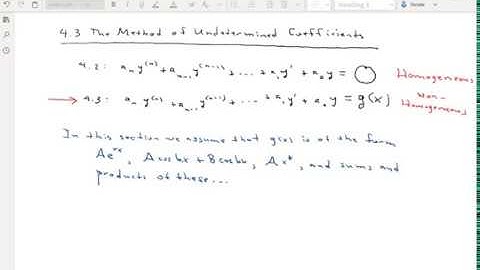 4.3 The Method of Undetermined Coefficients
4.2: aₙy⁽ⁿ⁾ + aₙ₋₁y⁽ⁿ⁻¹⁾ + ... + a₁y' + a₀y = 0 Homogeneous
→ 4.3: aₙy⁽ⁿ⁾ + aₙ₋₁y⁽ⁿ⁻¹⁾ + ... + a₁y' + a₀y = g(x) Non-
Homogeneous
In this section we assume that g(x) is of the form
Ae^rx, A cos bx + B cos bx, Ax^k, and sums and
products of these...